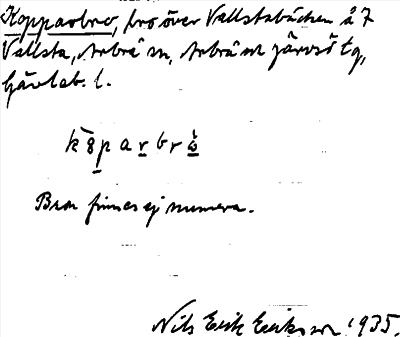 Kopparbro, bro över Vallstabäcken å 7
Vallsta, Arbrå sn, Arbrå och Järvsö tg,
Gävleb. l.
Bron finnes ej numera.
Nils Erik Eriksson 1935.